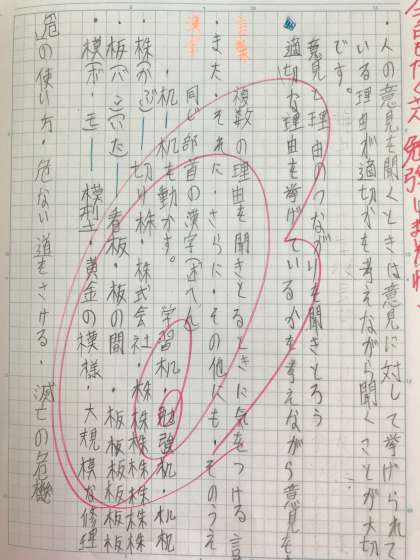 今日もたくさん勉強しましたね
・人の意見を聞くときは意見に対して挙げられて
いる理由が適切かを考えながら聞くことが大切
です。
意見と理由のつながりを聞きとろう
適切な理由を挙げているかを考えながら意見を
言葉
複数の理由を聞きとるときに気をつける言
・また・それに・さらに・その他にも・そのうえ
漢字
同じ部首の漢字(木へん
・机ー机を動かす。学習机・勉強机・机机
・株(かぶ)ー切り株・株式会社・株株株株株
・板(バン)(いた)ー看板・板の間・板板板板板
・模(ボ・モ)ー模型・黄金の模様・大規模な修理
危の使い方・危ない道をさける・滅亡の危機